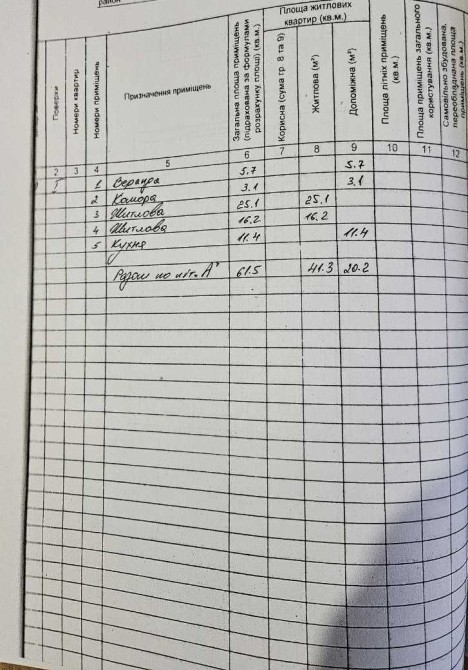 район
Поверхи
Номери квартир
Номери приміщень
Призначення приміщень
Загальна площа приміщень (підрахована за формулами розрахунку площі) (кв.м.)
Площа житлових квартир (кв.м.)
Корисна (сума гр. 8 та 9)
Житлова (м²)
Допоміжна (м²)
Площа літніх приміщень (кв.м.)
Площа приміщень загального користування (кв.м.)
Самовільно збудована, переобладнана площа приміщень (кв.м.)
2 3 4 5 6 7 8 9 10 11 12
1 Веранда 5.7 5.7
2 Комора 3.1 3.1
3 Житлова 25.1 25.1
4 Житлова 16.2 16.2
5 Кухня 11.4 11.4
Разом по літ. А" 61.5 41.3 20.2